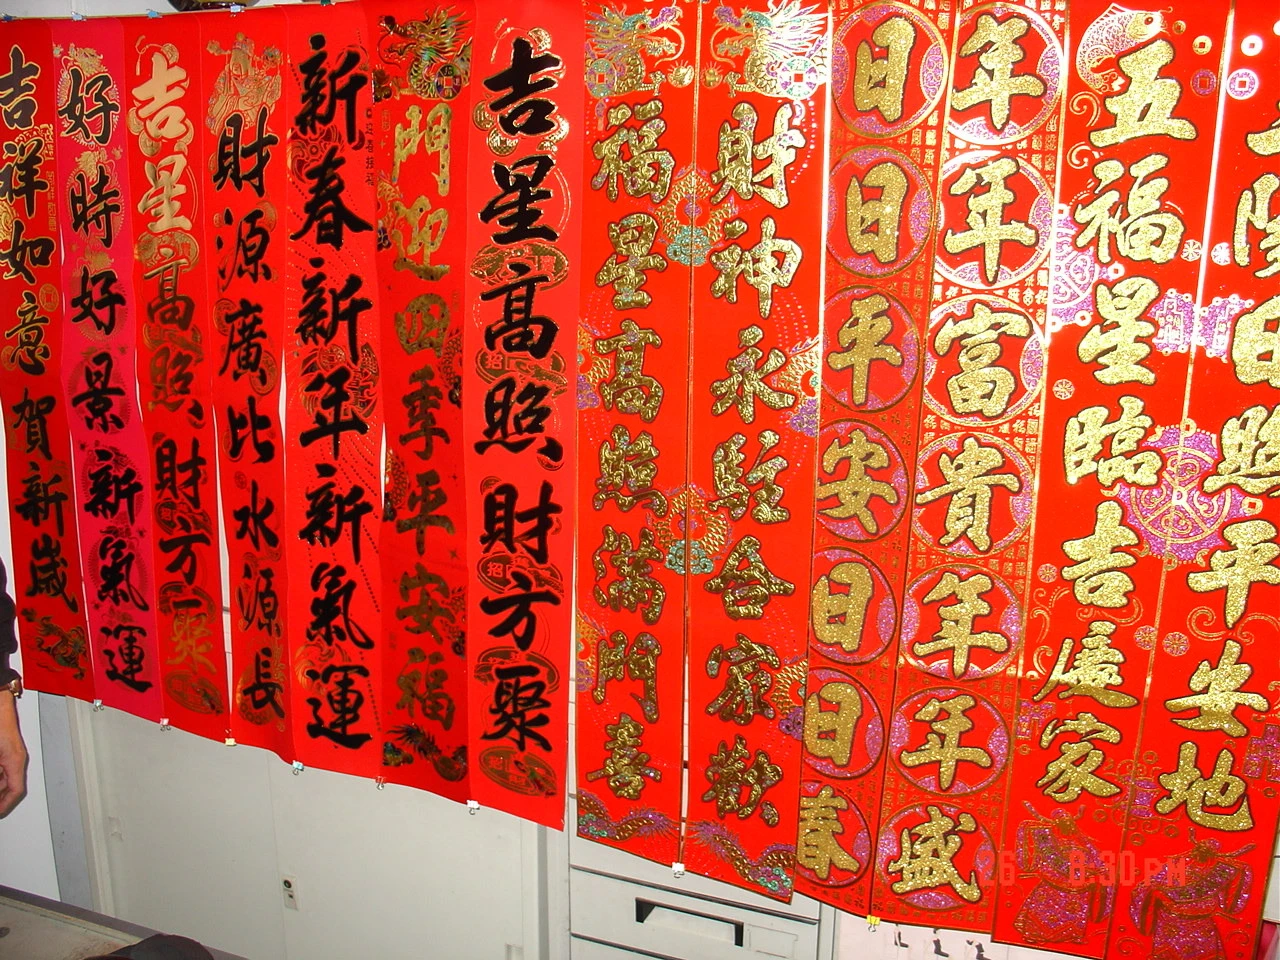 日照平安地
五福星臨吉慶家
年年富貴年年盛
日日平安日日春
財神永駐合家歡
福星高照滿門喜
吉星高照財方聚
門迎四季平安福
新春新年新氣運
財源廣比水源長
吉星高照財方聚
好時好景新氣運
吉祥如意賀新歲
26 8:30PM